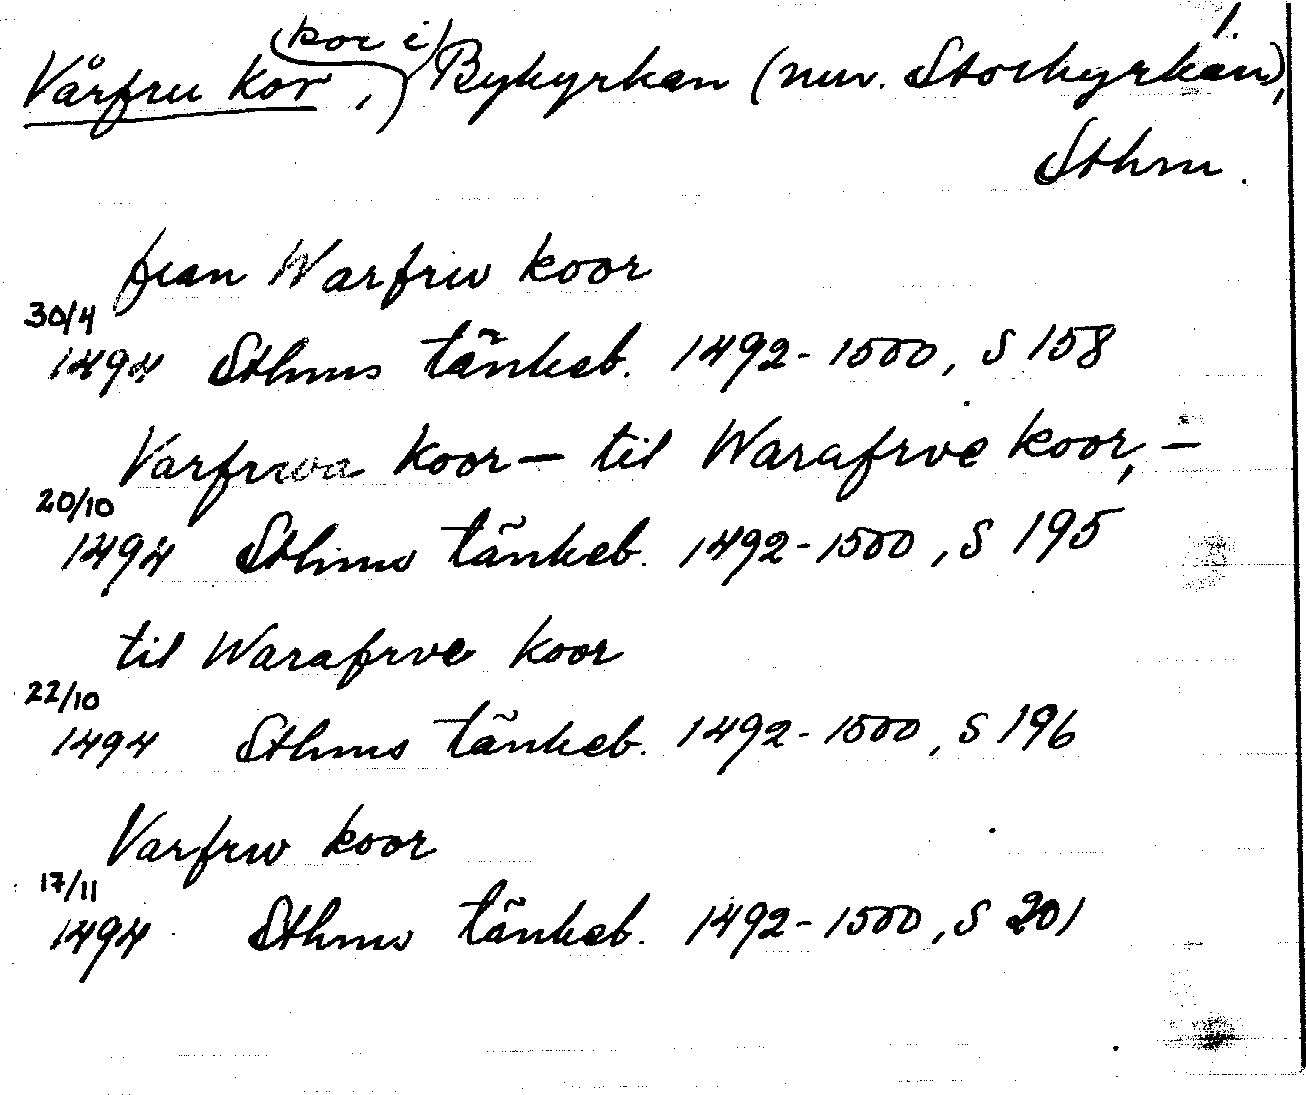 1.
Vårfru kor, (kor i) Bykyrkan (nuv. Storkyrkan),
Sthm.
fran Warfrw koor
30/4
1494 Sthms tänkeb. 1492-1500, S 158
Varfrwa koor — til Warafrve koor, —
20/10
1494 Sthms tänkeb. 1492-1500, S 195
til Warafrve koor
22/10
1494 Sthms tänkeb. 1492-1500, S 196
Varfrw koor
17/11
1494 Sthms tänkeb. 1492-1500, S 201